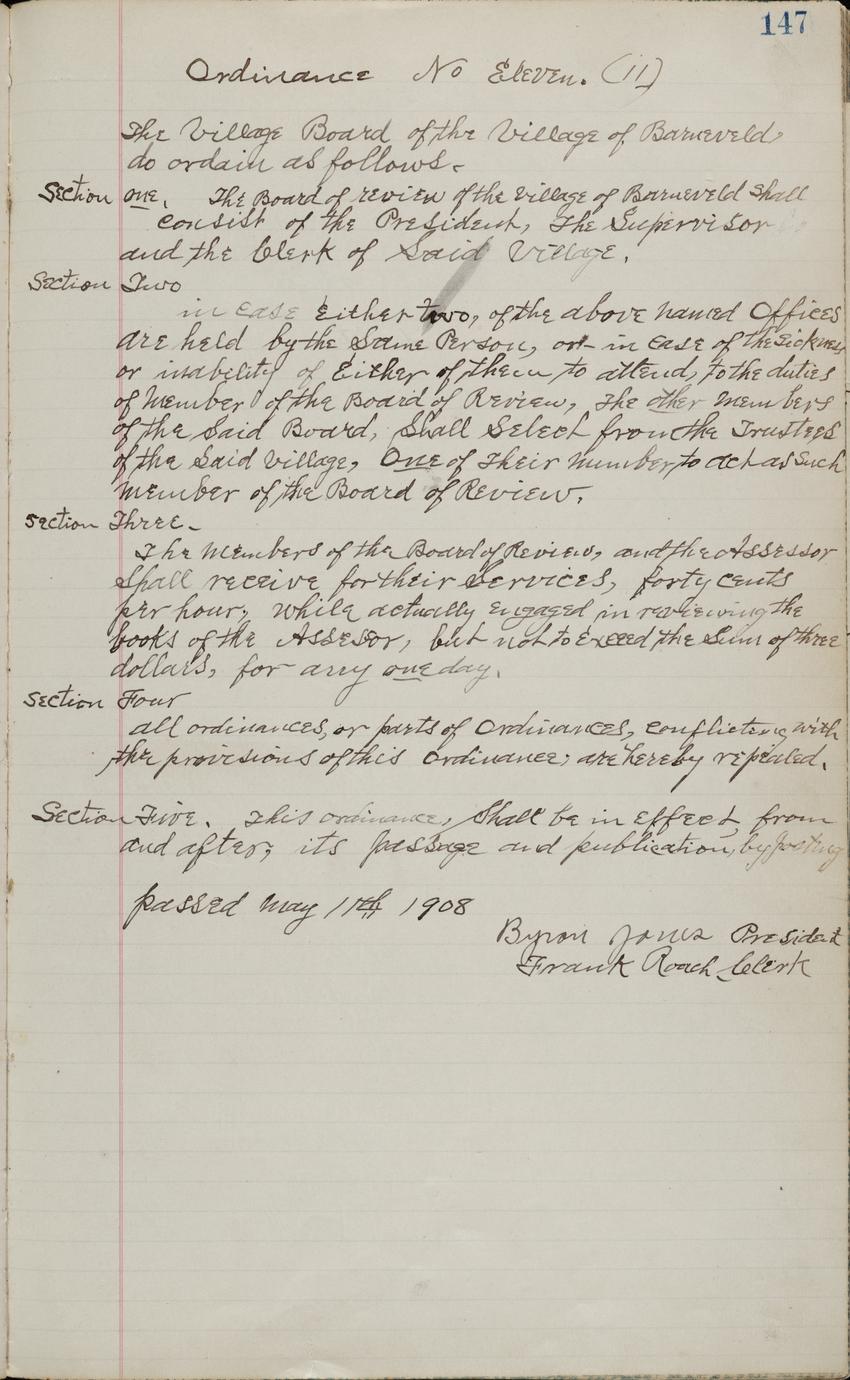 147
Ordinance No Eleven. (11)
The Village Board of the Village of Barneveld,
do ordain as follows.
Section one. The Board of review of the Village of Barneveld Shall
consist of the President, The Supervisor
and the Clerk of Said Village.
Section Two
in case Either two, of the above named Offices
are held by the Same Person, or in case of the Sickness
or inability of Either of them to attend, to the duties
of Member of the Board of Review, The other Members
of the Said Board, Shall Select from the Trustees
of the Said Village, One of Their number to act as Such
Member of the Board of Review.
Section Three.
The Members of the Board of Review, and the Assessor
Shall receive for their Services, forty cents
per hour, while actually engaged in reviewing the
books of the Assesor, but not to Exceed the Sum of three
dollars, for any one day.
Section Four
all ordinances, or parts of Ordinances, Conflicting with
the provisions of this Ordinance, are hereby repealed.
Section Five. This ordinance, Shall be in Effect, from
and after, its passage and publication, by posting
passed May 11th 1908
Byron Jones President
Frank Roach Clerk